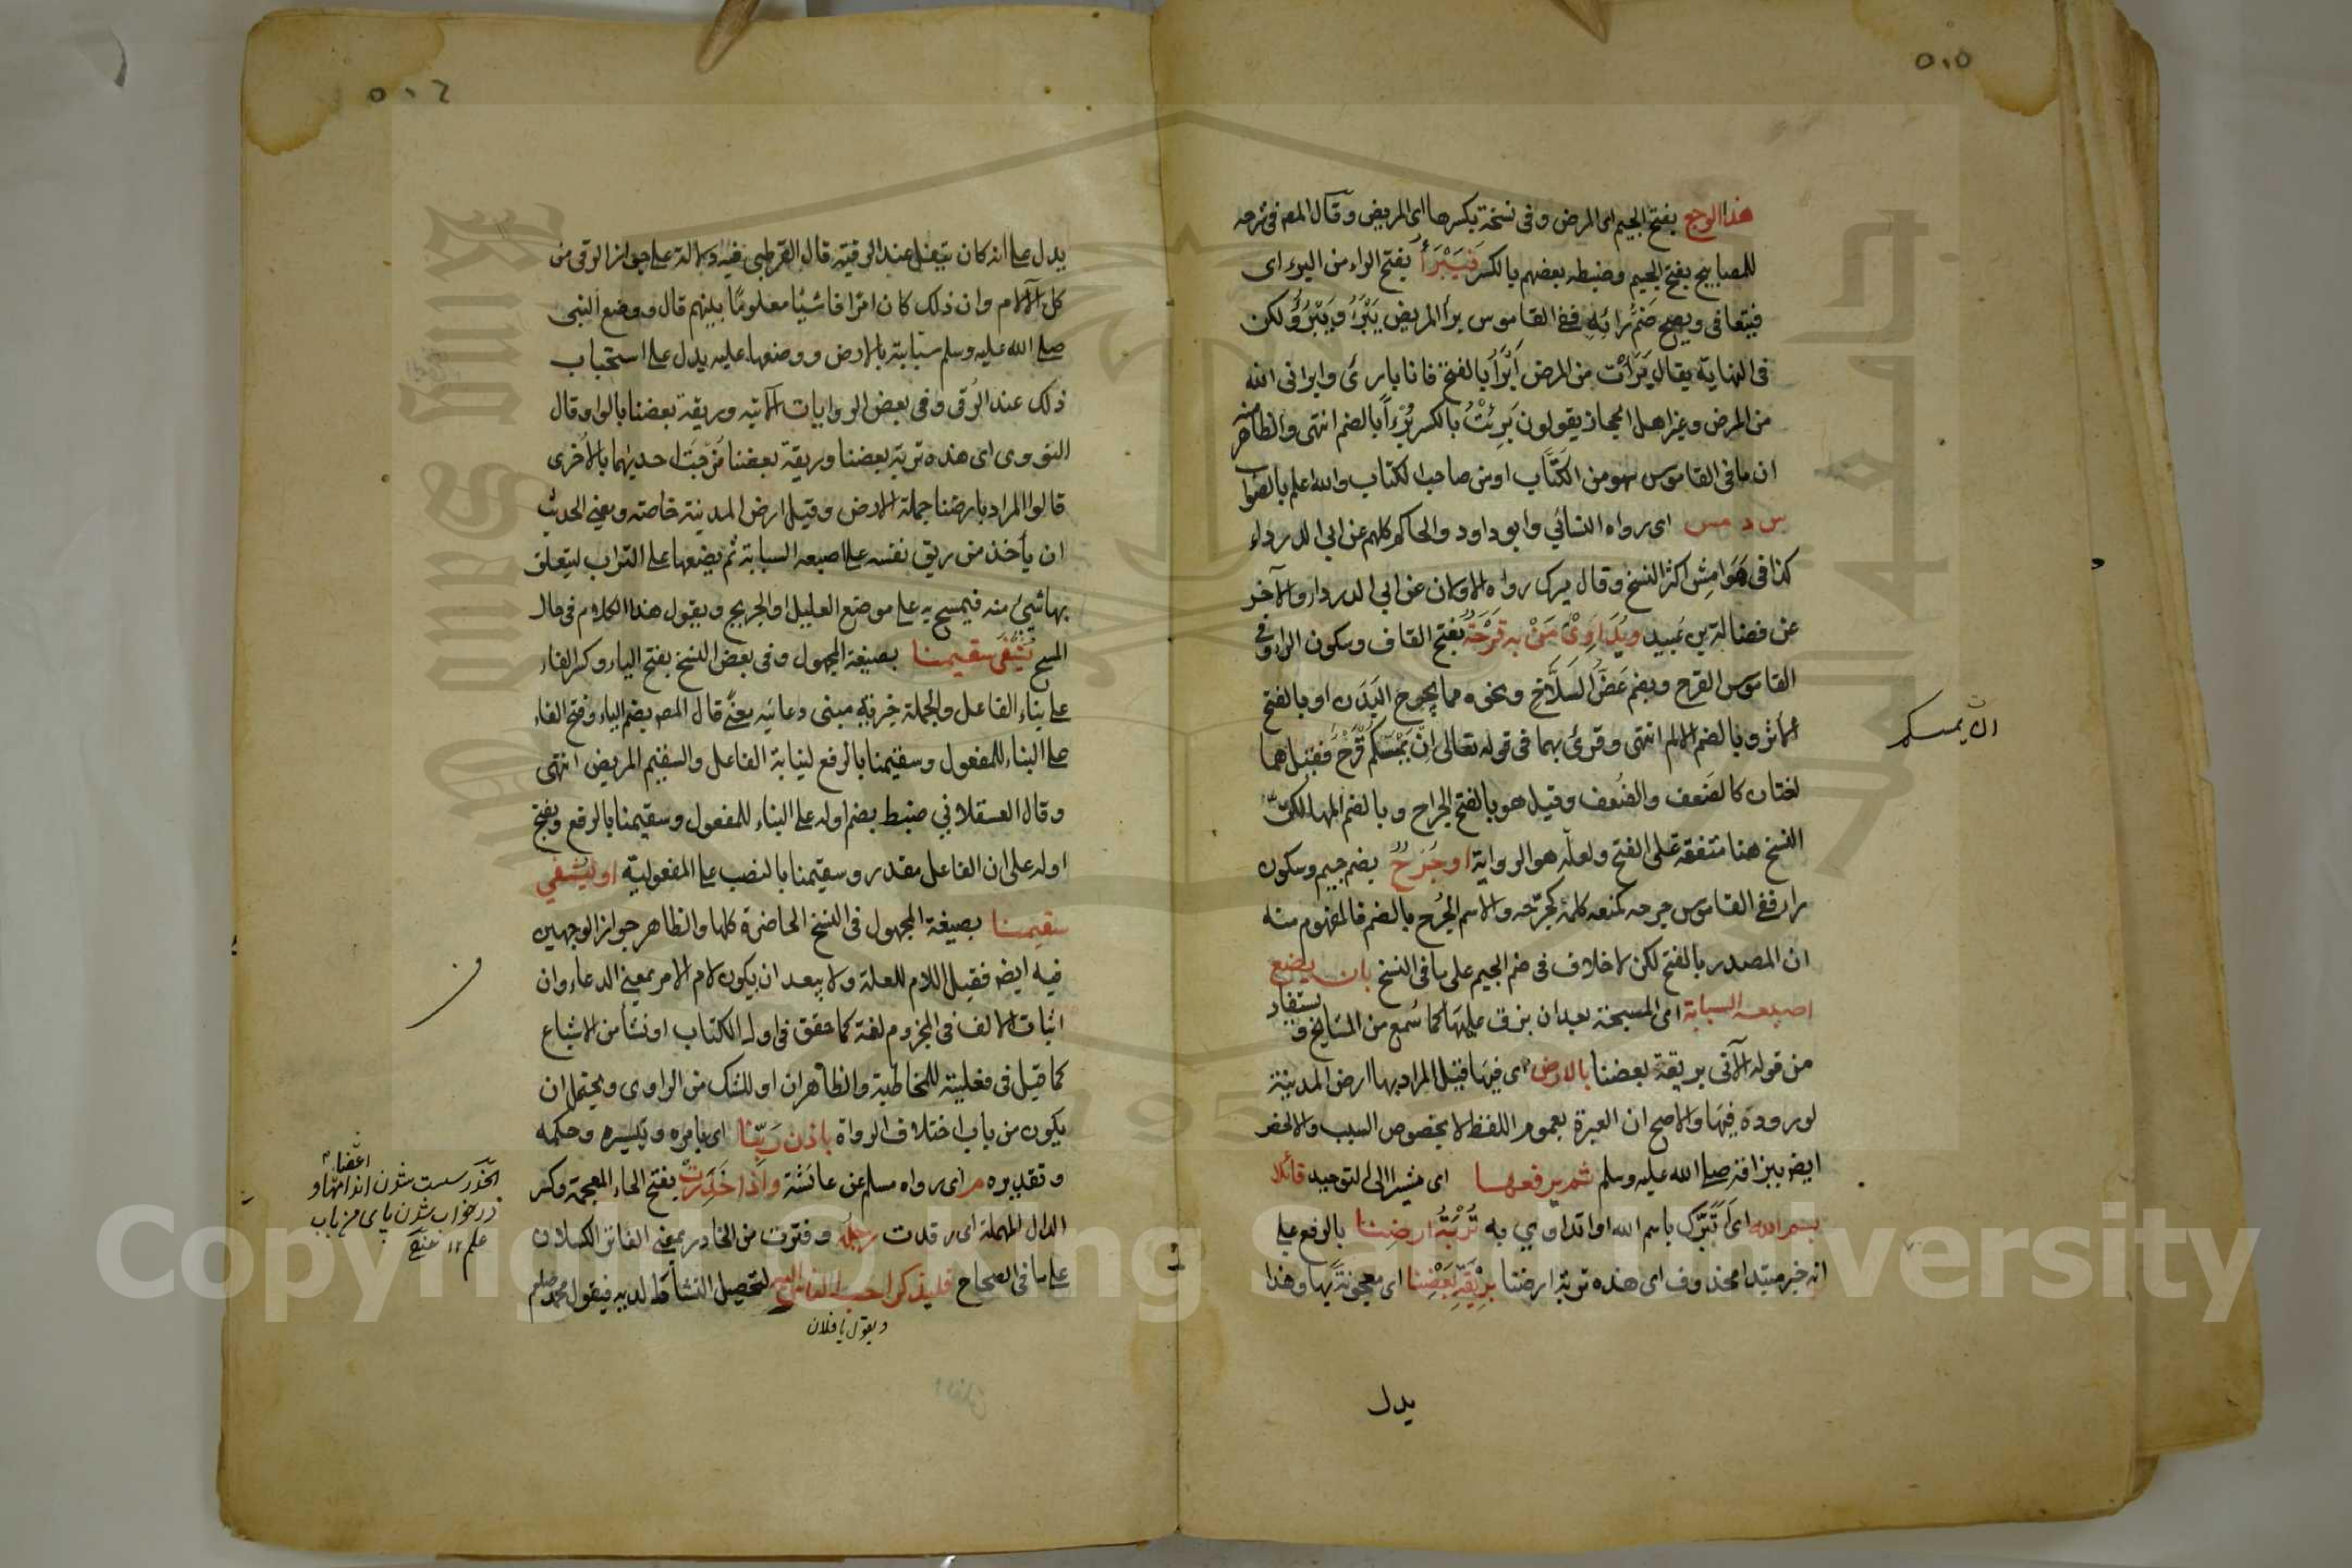 ٥٠٥
هذا الوجع بفتح الجيم اى المرض وفى نسخة بكسرها اى المريض وقال المص فى شرحه
للمصابيح بفتح الجيم وضبطه بعضهم بالكسر فَيَبْرَأُ بفتح الراء من البرء اى
فيتعافى ويصح ضم رائه ففى القاموس برأ المريض يَبْرَأُ ويَبْرُؤُ لكن
فى النهاية يقال بَرَأْت من المرض أَبْرَأُ بالفتح فانا بارئ وابرانى الله
من المرض وغير اهل الحجاز يقولون بَرِئْتُ بالكسر بُرْءاً بالضم انتهى والظاهر
ان ما فى القاموس سهو من الكتّاب او من صاحب الكتاب والله اعلم بالصواب
س د مس اى رواه النسائي وابو داود والحاكم كلهم عن ابى الدرداء
كذا فى هَوَامِش اكثر النسخ وقال ميرك رواه الاولان عن ابى الدرداء والآخر
عن فضالة بن عُبيد ويُدَاوِىْ مَنْ به قَرْحَةٌ بفتح القاف وسكون الراء وفى
القاموس القرح ويضم عَضُّ السلاح ونحوه مما يجرح البَدَن او بالفتح
الأثر وبالضم الالم انتهى وقرئ بهما فى قوله تعالى اِنْ يَمْسَسْكُمْ قَرْحٌ فقيل هما
ان يمسسكم
لغتان كالضَعف والضُعف وقيل هو بالفتح الجراح وبالضم المها لكن
النسخ هنا متفقة على الفتح ولعله هو الرواية او جُرْحٌ بضم جيم وسكون
راء ففى القاموس جرحه كمنعه كلمه كجرّحه والاسم الجُرح بالضم فالمفهوم منه
ان المصدر بالفتح لكن لا خلاف فى ضم الجيم على ما فى النسخ بان يضع
اصبعه السبابة اى المسبحة بعد ان بزق عليها كما سُمع من المشايخ ويستفاد
من قوله الآتى بريقة بعضنا بالارض اى فيها قيل المراد بها ارض المدينة
لوروده فيها والاصح ان العبرة بعموم اللفظ لا بخصوص السبب والا لخص
ايض ببزاقه صلى الله عليه وسلم ثم يرفعها اى مشيرا الى التوحيد قائلا
بسم الله اى اَتَبَرَّك باسم الله او اتداوي به تُرْبَةُ ارضنا بالرفع على
انه خبر مبتدا محذوف اى هذه تربة ارضنا بِرِيْقَةِ بَعْضِنا اى معجونة بها وهذا
يدل
٥٠٦
يدل على انه كان يتفل عند الرقية قال القرطبى فيه دلالة على جواز الرقى من
كل الآلام وان ذلك كان امرًا فاشيًا معلومًا بينهم قال ووضع النبى
صلى الله عليه وسلم سبّابته بالارض ووضعها عليه يدل على استحباب
ذلك عند الرُقى وفى بعض الروايات الآتيه وريقة بعضنا بالواو قال
النووى اى هذه تربة بعضنا وريقة بعضنا مُزجَت احديهما بالاُخرى
قالوا المراد بارضنا جملة الارض وقيل ارض المدينة خاصة ومعنى الحديث
ان يأخذ من ريق نفسه على اصبعه السبابة ثم يضعها على التراب ليتعلق
بها شيئ منه فيمسح به على موضع العليل او الجريح ويقول هذا الكلام فى حال
المسح يُشْفَى سقيمنا بصيغة المجهول وفى بعض النسخ بفتح الياء وكسر الفاء
على بناء الفاعل والجملة خبرية مبنى دعائيه معنًى قال المص بضم الياء وفتح الفاء
على البناء للمفعول وسقيمنا بالرفع لنيابة الفاعل والسقيم المريض انتهى
وقال العسقلاني ضبط بضم اوله على البناء للمفعول وسقيمنا بالرفع وبفتح
اوله على ان الفاعل مقدر وسقيمنا بالنصب على المفعولية او ليُشفي
سقيمنا بصيغة المجهول فى النسخ الحاضرة كلها والظاهر جواز الوجهين
فيه ايض فقيل اللام للعلة ولا يبعد ان يكون لام الامر بمعنى الدعاء وان
اثبات الالف فى المجزوم لغة كما حقق فى اول الكتاب او نشأ من الاشباع
كما قيل فى مغلبية للمخاطبة والظاهر ان او للشك من الراوى ويحتمل ان
يكون من باب اختلاف الرواة باذن رَبِّنا اى بامره وتيسيره وحكمه
وتقديره مر اى رواه مسلم عن عائشة وَاذا خَدِرَتْ بفتح الخاء المعجمة وكسر
الدال المهملة اى رقدت رِجْلُه وفترت من الخادر بمعنى الفاتر الكسلان
على ما فى الصحاح فليذكر احب الناس اليه لتحصيل النشاط لديه فيقول محمد صلعم
ويقول يا فلان
الخدر سست شدن اندامها و
اعضا
در خواب شدن پاى من باب
علم ١٢